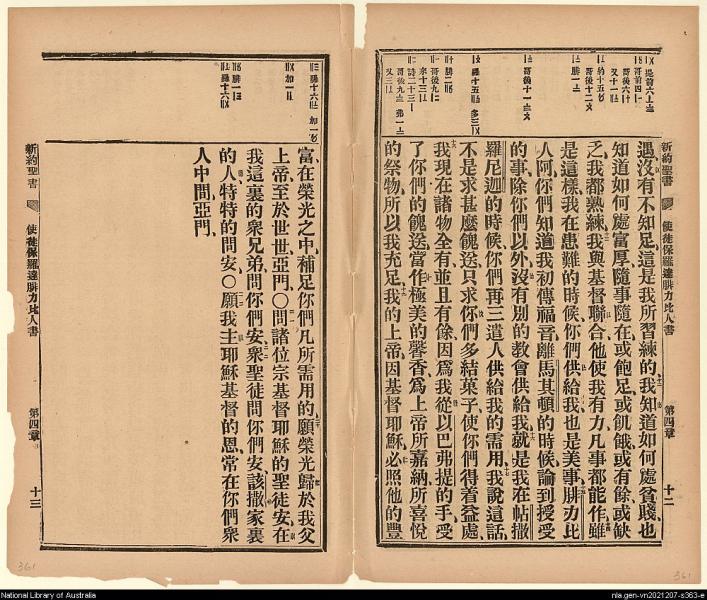 遇沒有不知足這是我所習練的我知道如何處貧賤也
知道如何處富厚隨事隨在或飽足或飢餓或有餘或缺
乏我都熟練我與基督聯合他使我有力凡事都能作雖
是這樣我在患難的時候你們供給我也是美事腓立比
人阿你們知道我初傳福音離馬其頓的時候論到授受
的事除你們以外沒有別的教會供給我就是我在帖撒
羅尼迦的時候你們再三遣人供給我的需用我說這話
不是求甚麼餽送只求你們多結菓子使你們得着益處
我現在諸物全有並且有餘因爲我從以巴弗提的手受
了你們的餽送當作極美的馨香爲上帝所嘉納所喜悅
的祭物所以我充足我的上帝因基督耶穌必照他的豐
新約聖書
使徒保羅達腓立比人書
第四章
十二
富在榮光之中補足你們凡所需用的願榮光歸於我父
上帝至於世世亞門○問諸位宗基督耶穌的聖徒安在
我這裏的衆兄弟問你們安衆聖徒問你們安該撒家裏
的人特特的問安○願我主耶穌基督的恩常在你們衆
人中間亞門
新約聖書
使徒保羅達腓立比人書
第四章
十三
361
361
National Library of Australia
nla.gen-vn2021207-s363-e